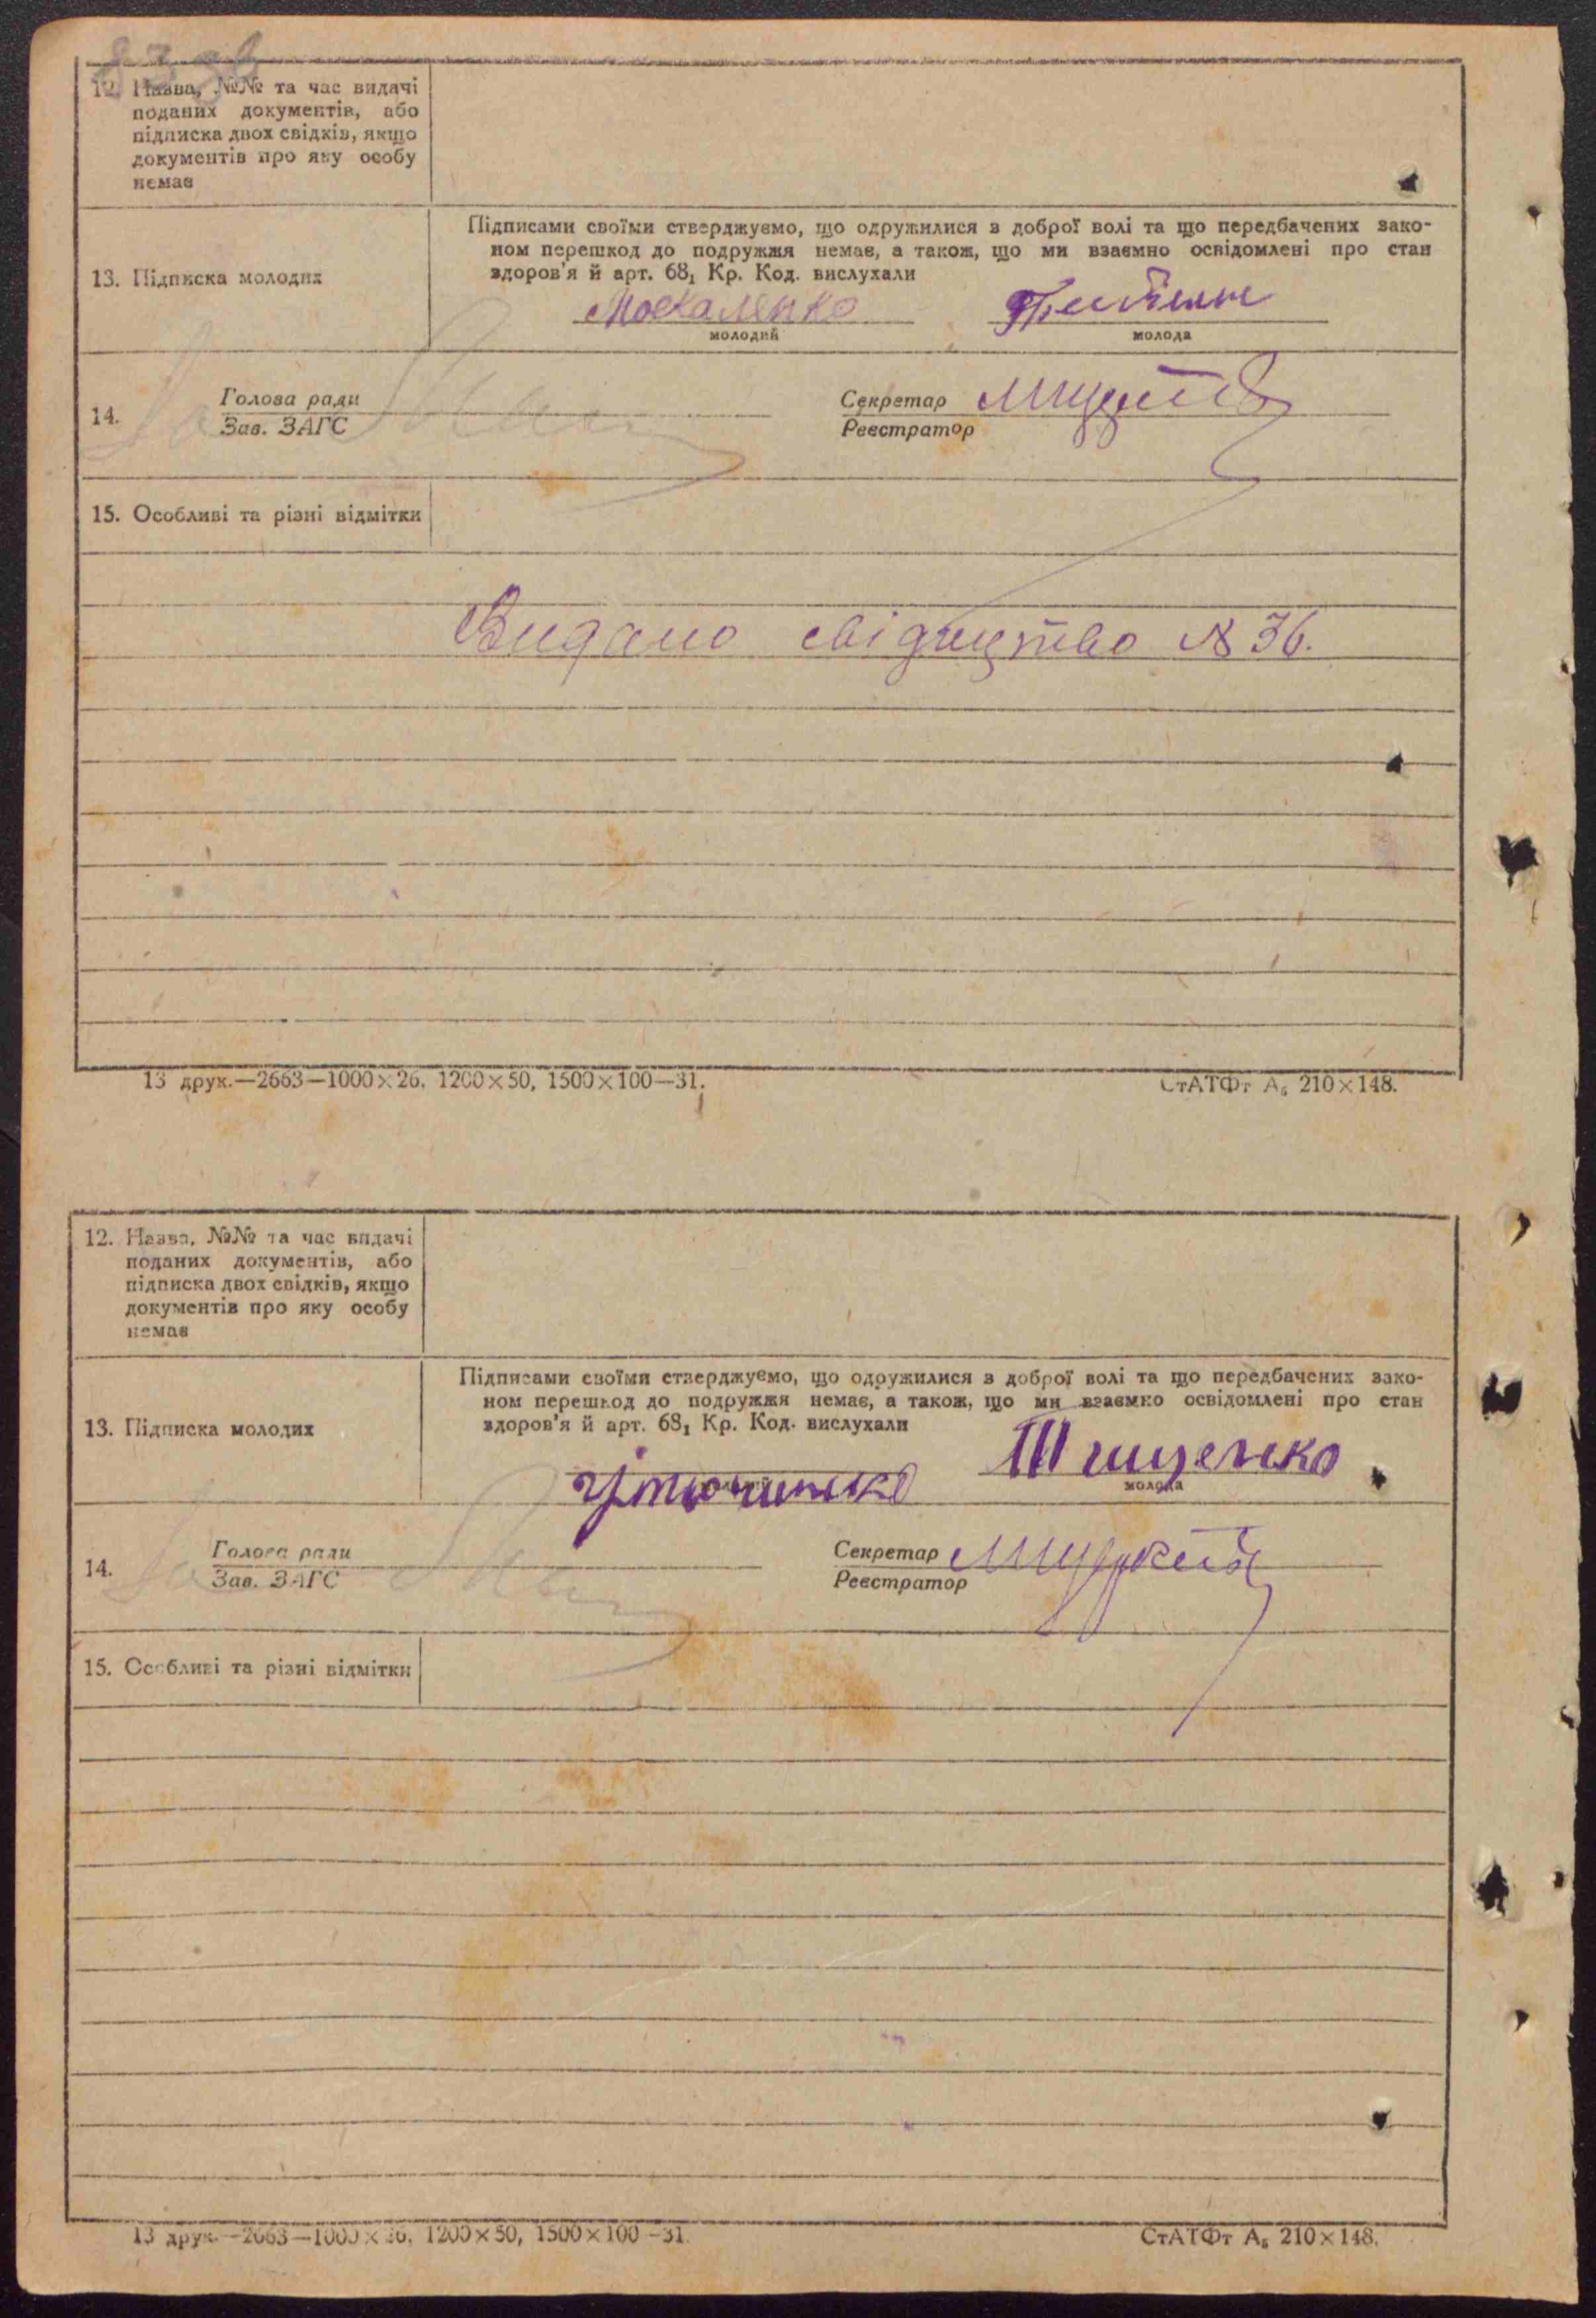 12. Назва, №№ та час видачі
поданих документів, або
підписка двох свідків, якщо
документів про яку особу
немає
13. Підписка молодих
Підписами своїми стверджуємо, що одружилися з доброї волі та що передбачених зако-
ном перешкод до подружжя немає, а також, що ми взаємно освідомлені про стан
здоров'я й арт. 68₁ Кр. Код. вислухали
Москаленко
молодий молода
14. Голова ради Секретар
Зав. ЗАГС Реєстратор
15. Особливі та різні відмітки
Видано свідоцтво № 36.
13 друк.—2663—1000×26, 1200×50, 1500×100—31. СтАТФт А₅ 210×148.
12. Назва, №№ та час видачі
поданих документів, або
підписка двох свідків, якщо
документів про яку особу
немає
13. Підписка молодих
Підписами своїми стверджуємо, що одружилися з доброї волі та що передбачених зако-
ном перешкод до подружжя немає, а також, що ми взаємно освідомлені про стан
здоров'я й арт. 68₁ Кр. Код. вислухали
Тищенко
молода
14. Голова ради Секретар
Зав. ЗАГС Реєстратор
15. Особливі та різні відмітки
13 друк.—2663—1000×26, 1200×50, 1500×100—31. СтАТФт А₅ 210×148.